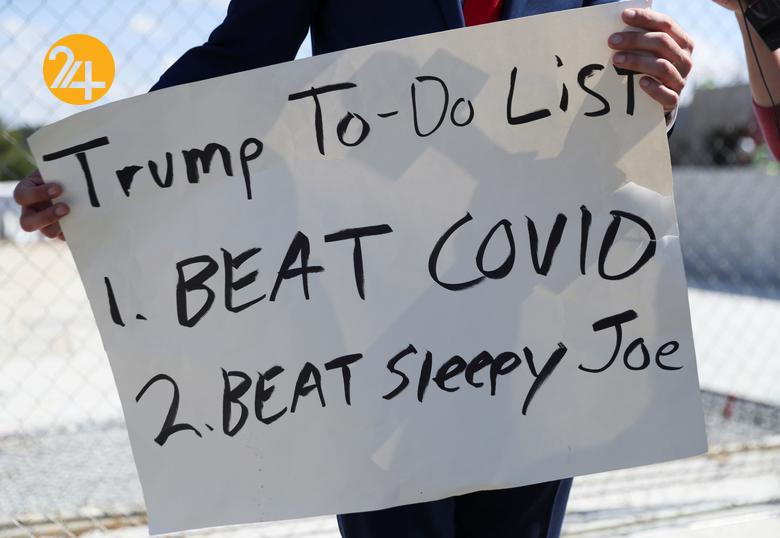 24
Trump To-Do List
1. BEAT COVID
2. BEAT Sleepy Joe